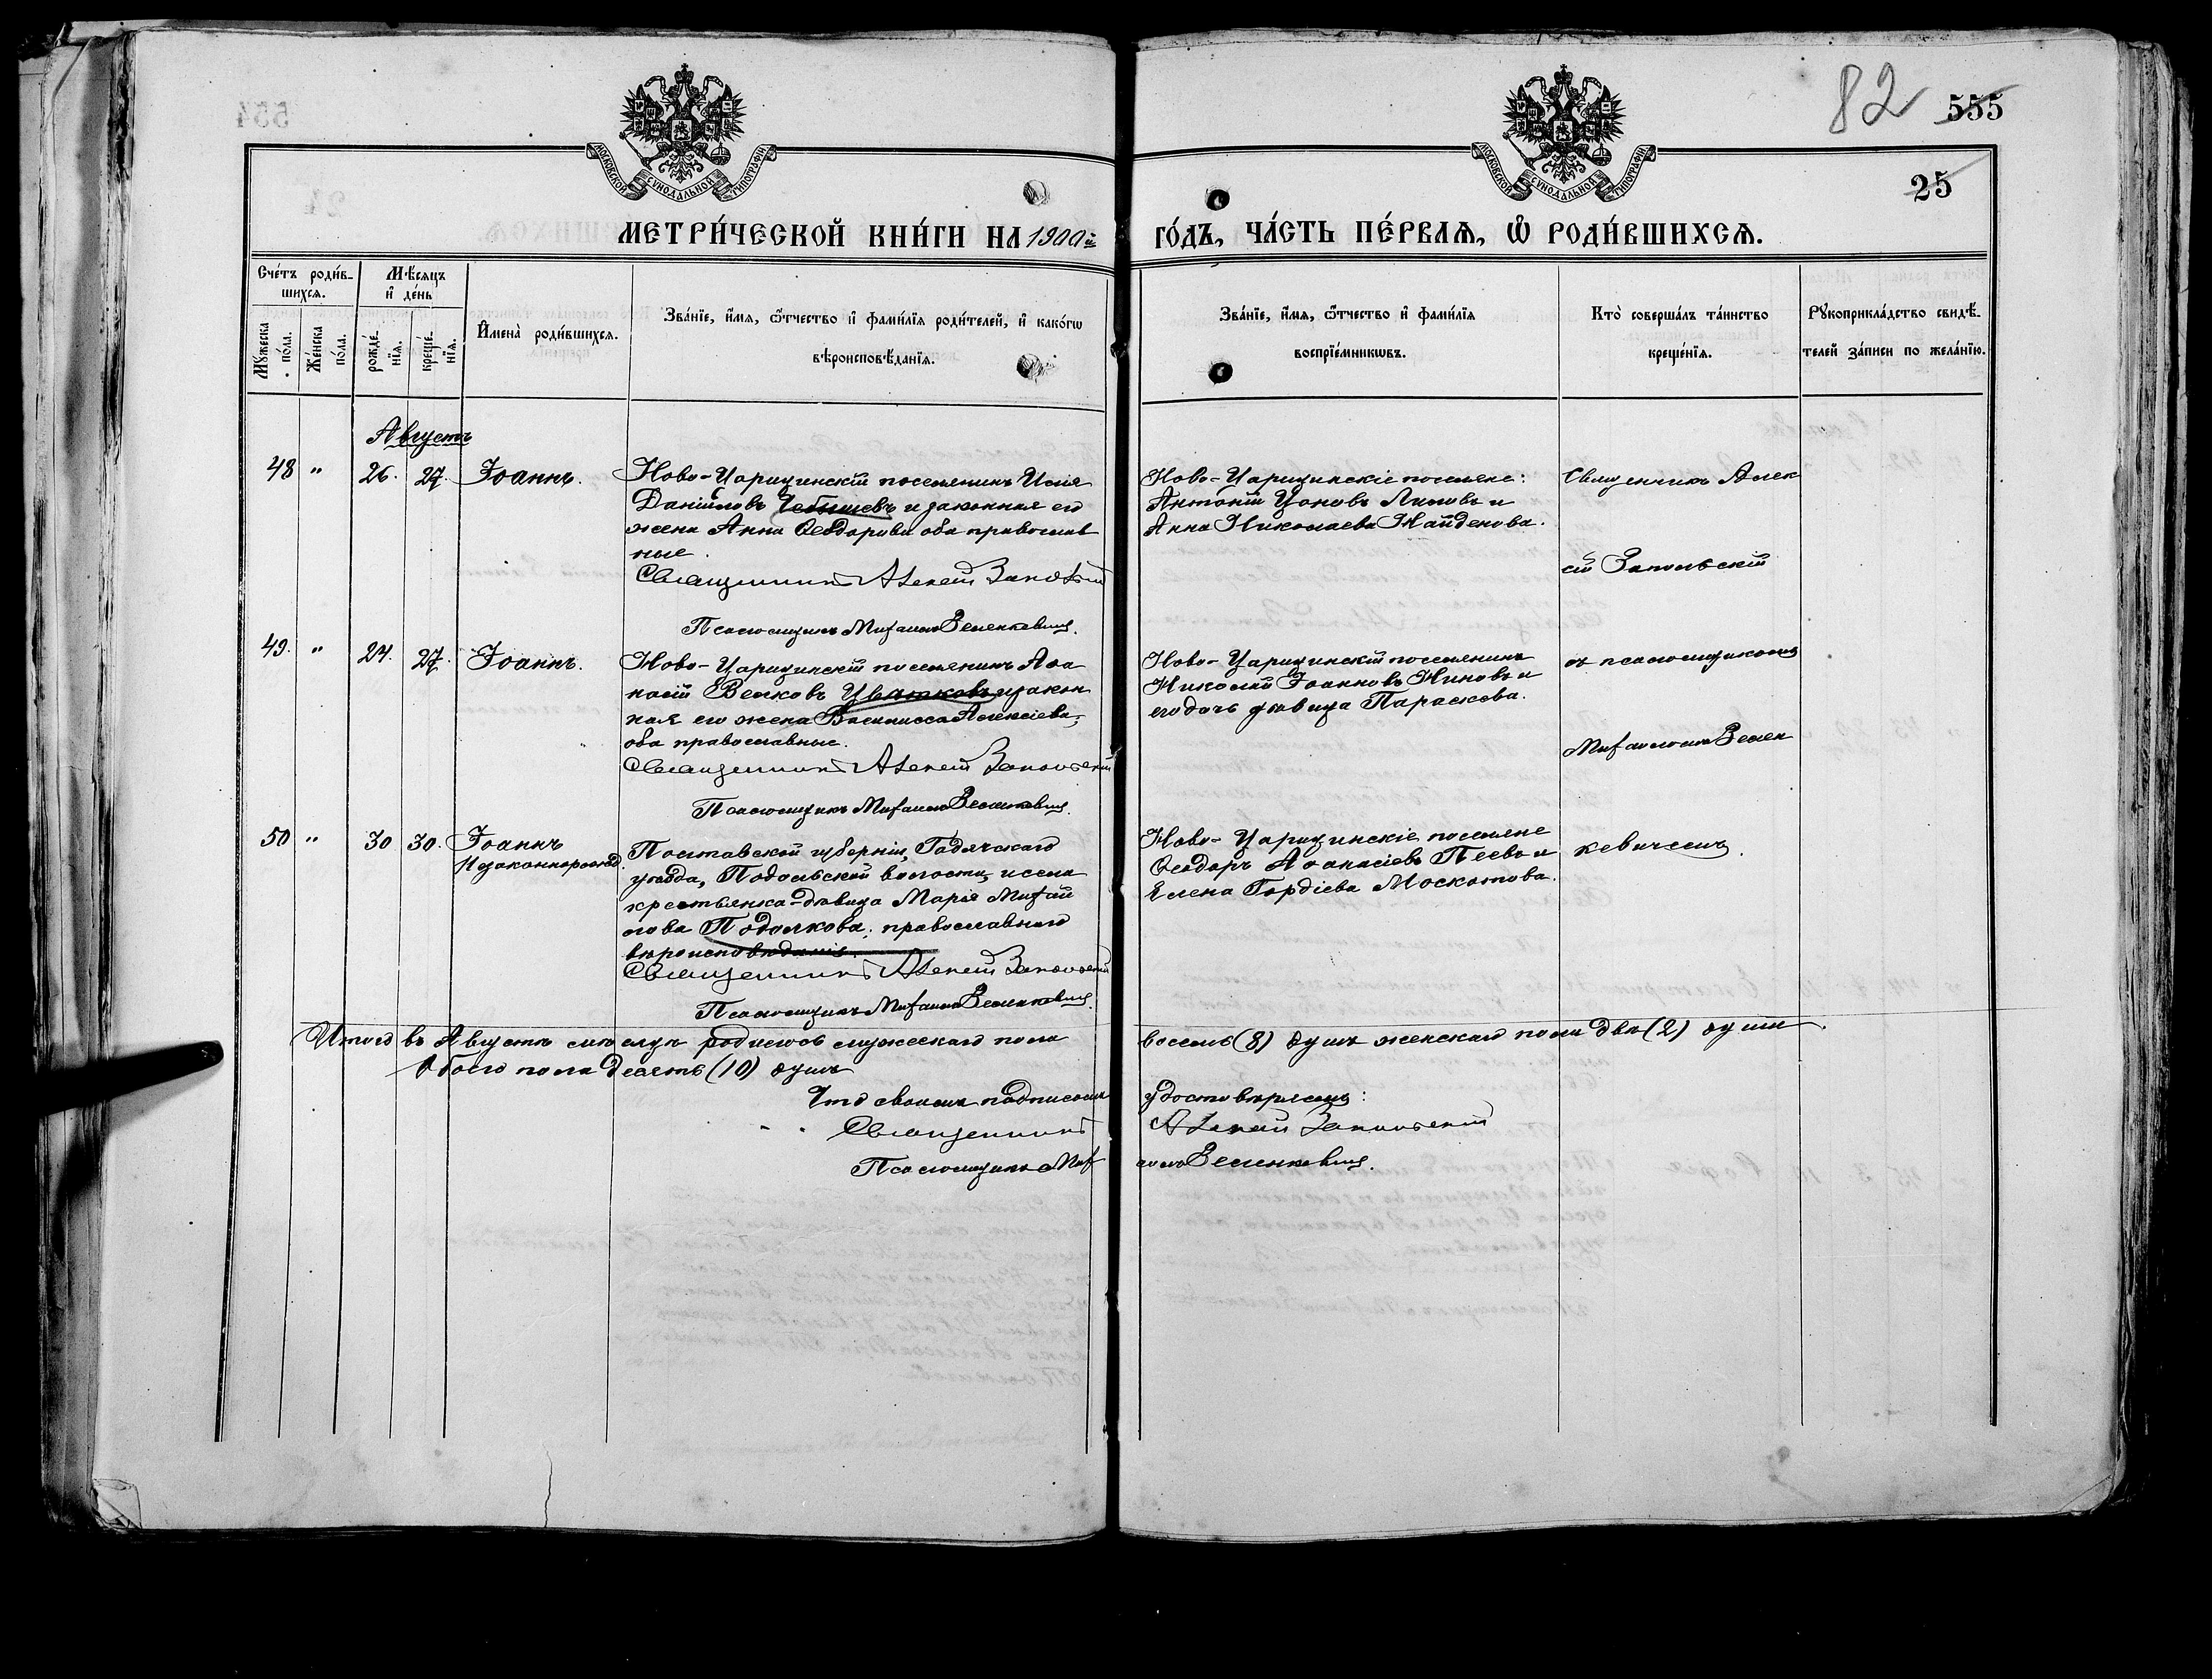 82 555
25
МОСКОВСКОЙ СѴНОДАЛЬНОЙ ТИПОГРАФІИ
МОСКОВСКОЙ СѴНОДАЛЬНОЙ ТИПОГРАФІИ
МЕТРИ́ЧЕСКОЙ КНИ́ГИ НА 1900й ГО́ДЪ, ЧА́СТЬ ПЕ́РВАѦ, Ѡ҆ РОДИ́ВШИХСѦ.
Сче́тъ роди́в-
шихсѧ.
Мѣ́сѧцъ
и҆ де́нь
Мꙋ́жеска
по́ла.
Же́нска
по́ла.
рожде́-
нїѧ.
креще́-
нїѧ.
И҆мена̀ роди́вшихсѧ.
Зва́нїе, и҆́мѧ, ѻ҆́тчество и҆ фами́лїѧ роди́телей, и҆ како́гѡ
вѣроисповѣ́данїѧ.
Зва́нїе, и҆́мѧ, ѻ҆́тчество и҆ фами́лїѧ
воспрїе́мникѡвъ.
Кто̀ соверша́лъ та́инство
креще́нїѧ.
Рꙋкоприкла́дство свидѣ́-
телей за́писи по жела́нїю.
Августъ
48 " 26. 27. Іоаннъ.
Ново-Царицинскій поселянинъ Илія
Даніиловъ Чебышевъ и законная его
жена Анна Ѳеодорова оба православ
ные.
Священникъ Алексій Запольскій
Псаломщикъ Михаилъ Зеленкевичъ.
Ново-Царицинскіе поселяне:
Антоній Цоновъ и
Анна Николаева Найденова.
Священникъ Алек
сій Запольскій
49. " 24. 27. Іоаннъ.
Ново-Царицинскій поселянинъ Аѳа
насій Велковъ Цватковъ и закон
ная его жена Василисса Алексіева,
оба православные.
Священникъ Алексій Запольскій
Псаломщикъ Михаилъ Зеленкевичъ.
Ново-Царицинскій поселянинъ
Николай Іоанновъ Ниновъ и
его дочь дѣвица Параскева.
съ псаломщикомъ
Михаиломъ Зелен
50 " 30 30. Іоаннъ
Незаконнорожд.
Полтавской губерніи, Гадячскаго
уѣзда, Подольской волости, и села
крестьянка-дѣвица Марія Михаи
лова Подолкова, православнаго
вѣроисповѣданія.
Священникъ Алексій Запольскій
Псаломщикъ Михаилъ Зеленкевичъ.
Ново-Царицинскіе поселяне
Ѳеодоръ Аѳанасіевъ Пеевъ и
Елена Гордіева Москотова.
кевичемъ.
Итого въ Августѣ мѣсяцѣ родилось мужескаго пола восемь (8) душъ женскаго пола двѣ (2) души.
Обоего пола десять (10) душъ
Что своимъ подписомъ удостовѣряемъ:
Священникъ Алексій Запольскій
Псаломщикъ Михаилъ Зеленкевичъ.